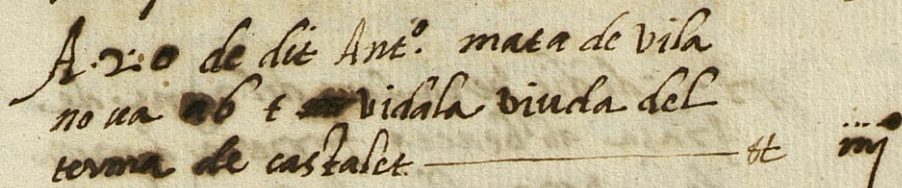 A · 2 · o de dit Antº. mata de vila
no va ab t vidala viuda del
terma de castalet ——— tt iiijº